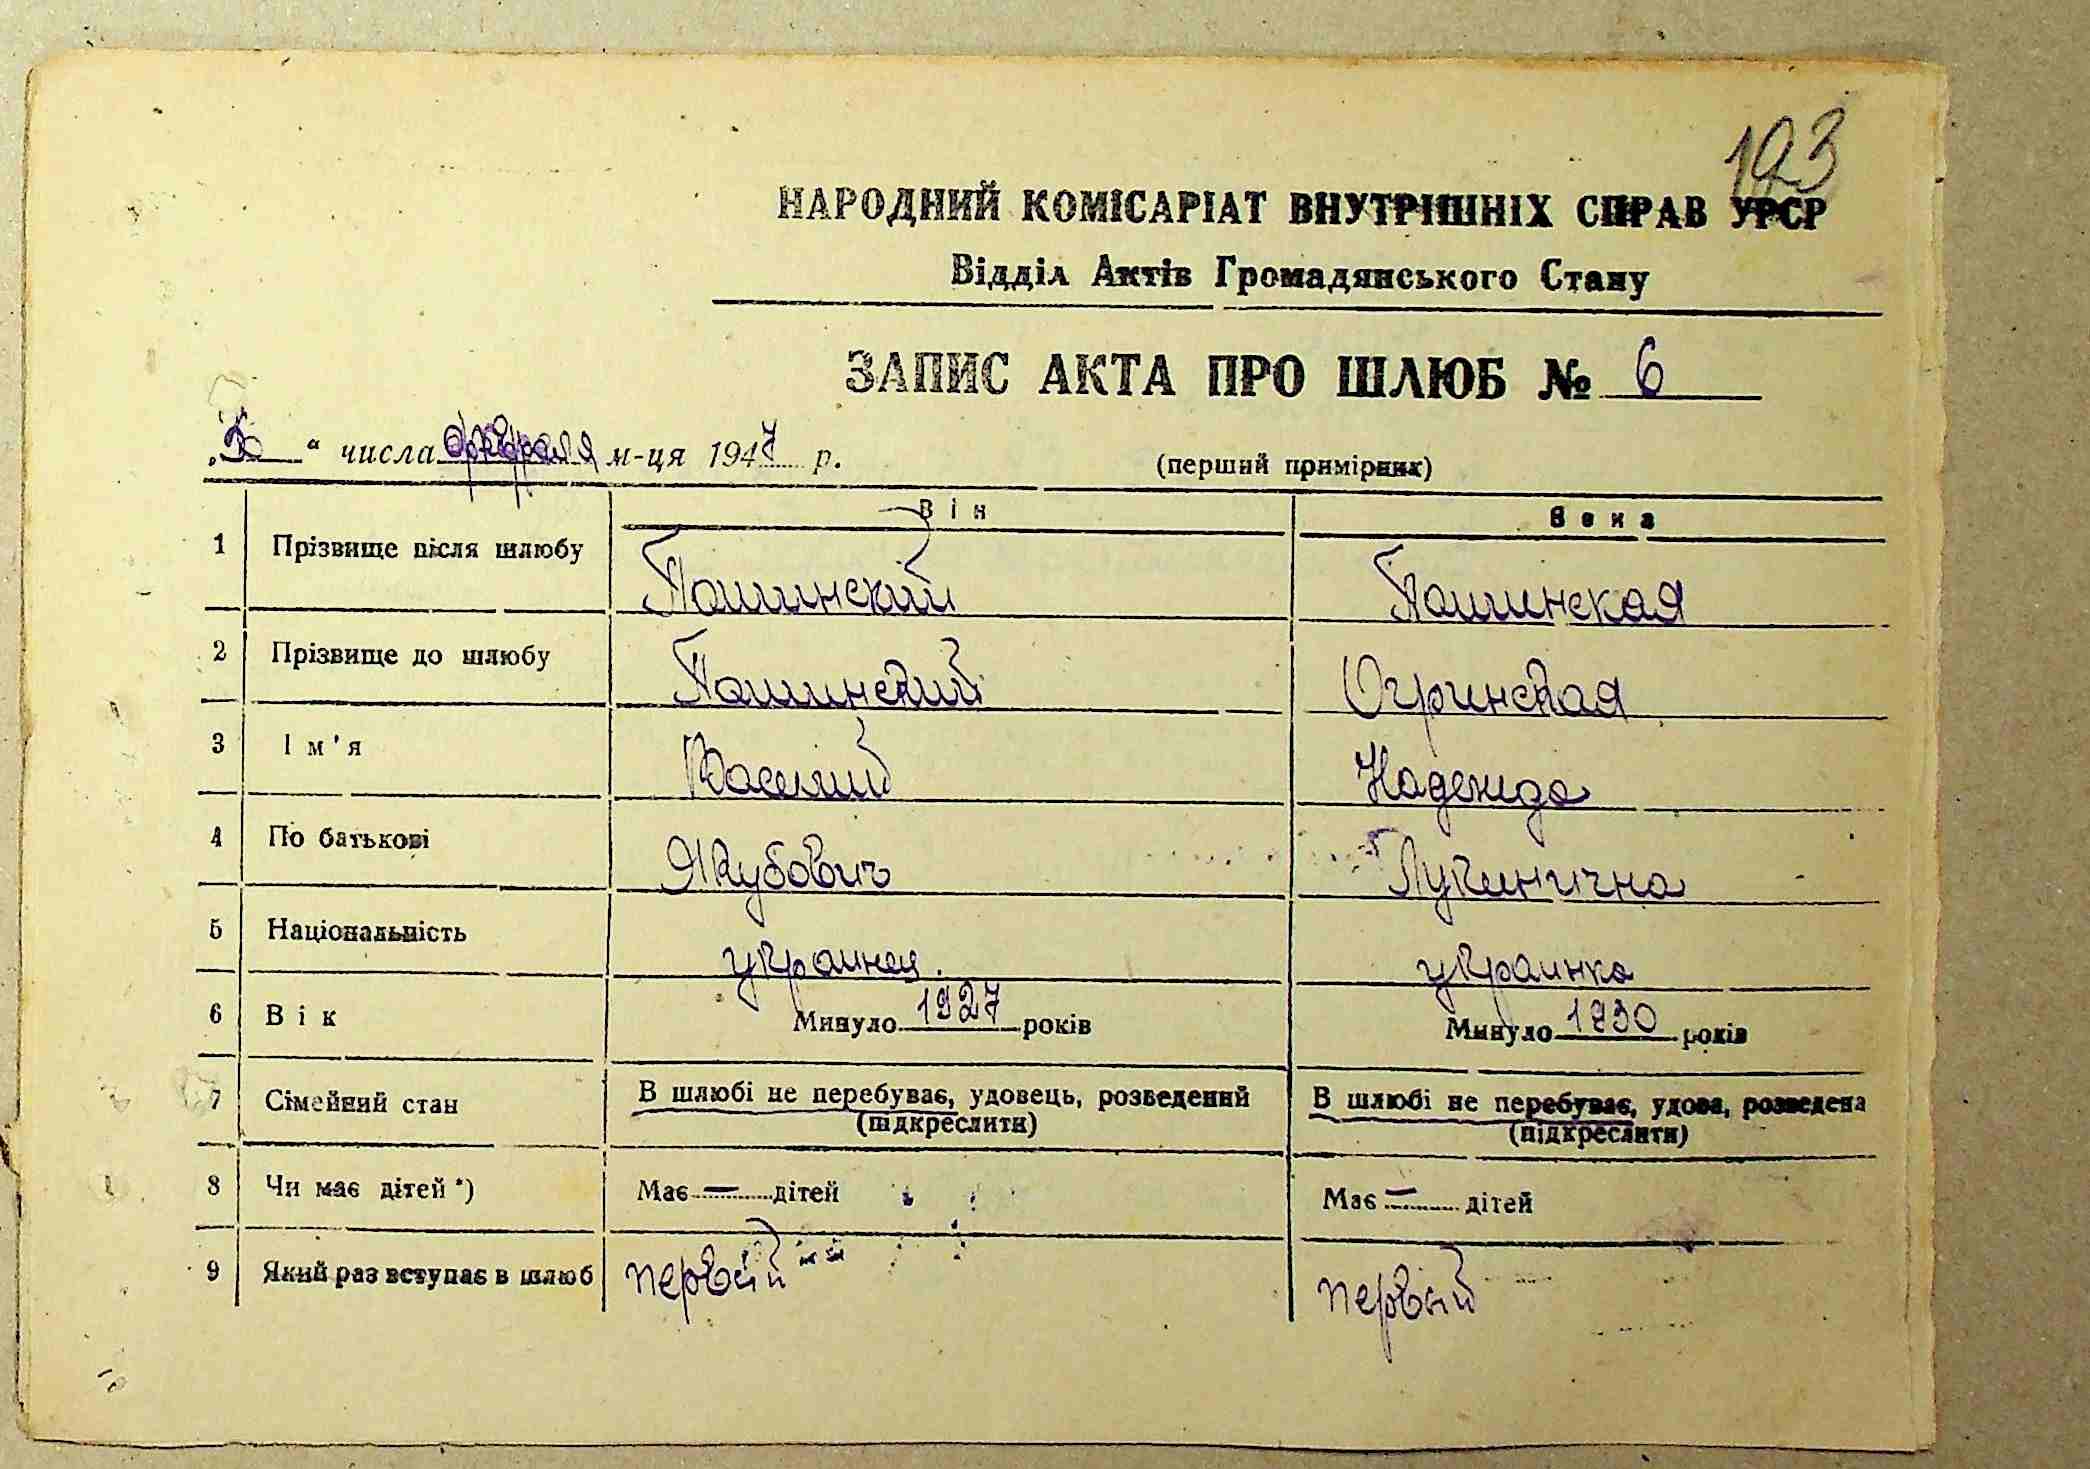 193
НАРОДНИЙ КОМІСАРІАТ ВНУТРІШНІХ СПРАВ УРСР
Відділ Актів Громадянського Стану
ЗАПИС АКТА ПРО ШЛЮБ № 6
" числа февраля м-ця 1947 р.
(перший примірник)
Він Вона
1 Прізвище після шлюбу Пашинский Пашинская
2 Прізвище до шлюбу Пашинский Огринская
3 Ім'я Василий Надежда
4 По батькові Якубович Лукинична
5 Національність украинец. украинка
6 Вік Минуло 1927 років Минуло 1930 років
7 Сімейний стан В шлюбі не перебуває, удовець, розведений В шлюбі не перебуває, удова, розведена
(підкреслити) (підкреслити)
8 Чи має дітей *) Має — дітей Має — дітей
9 Який раз вступає в шлюб первый первый